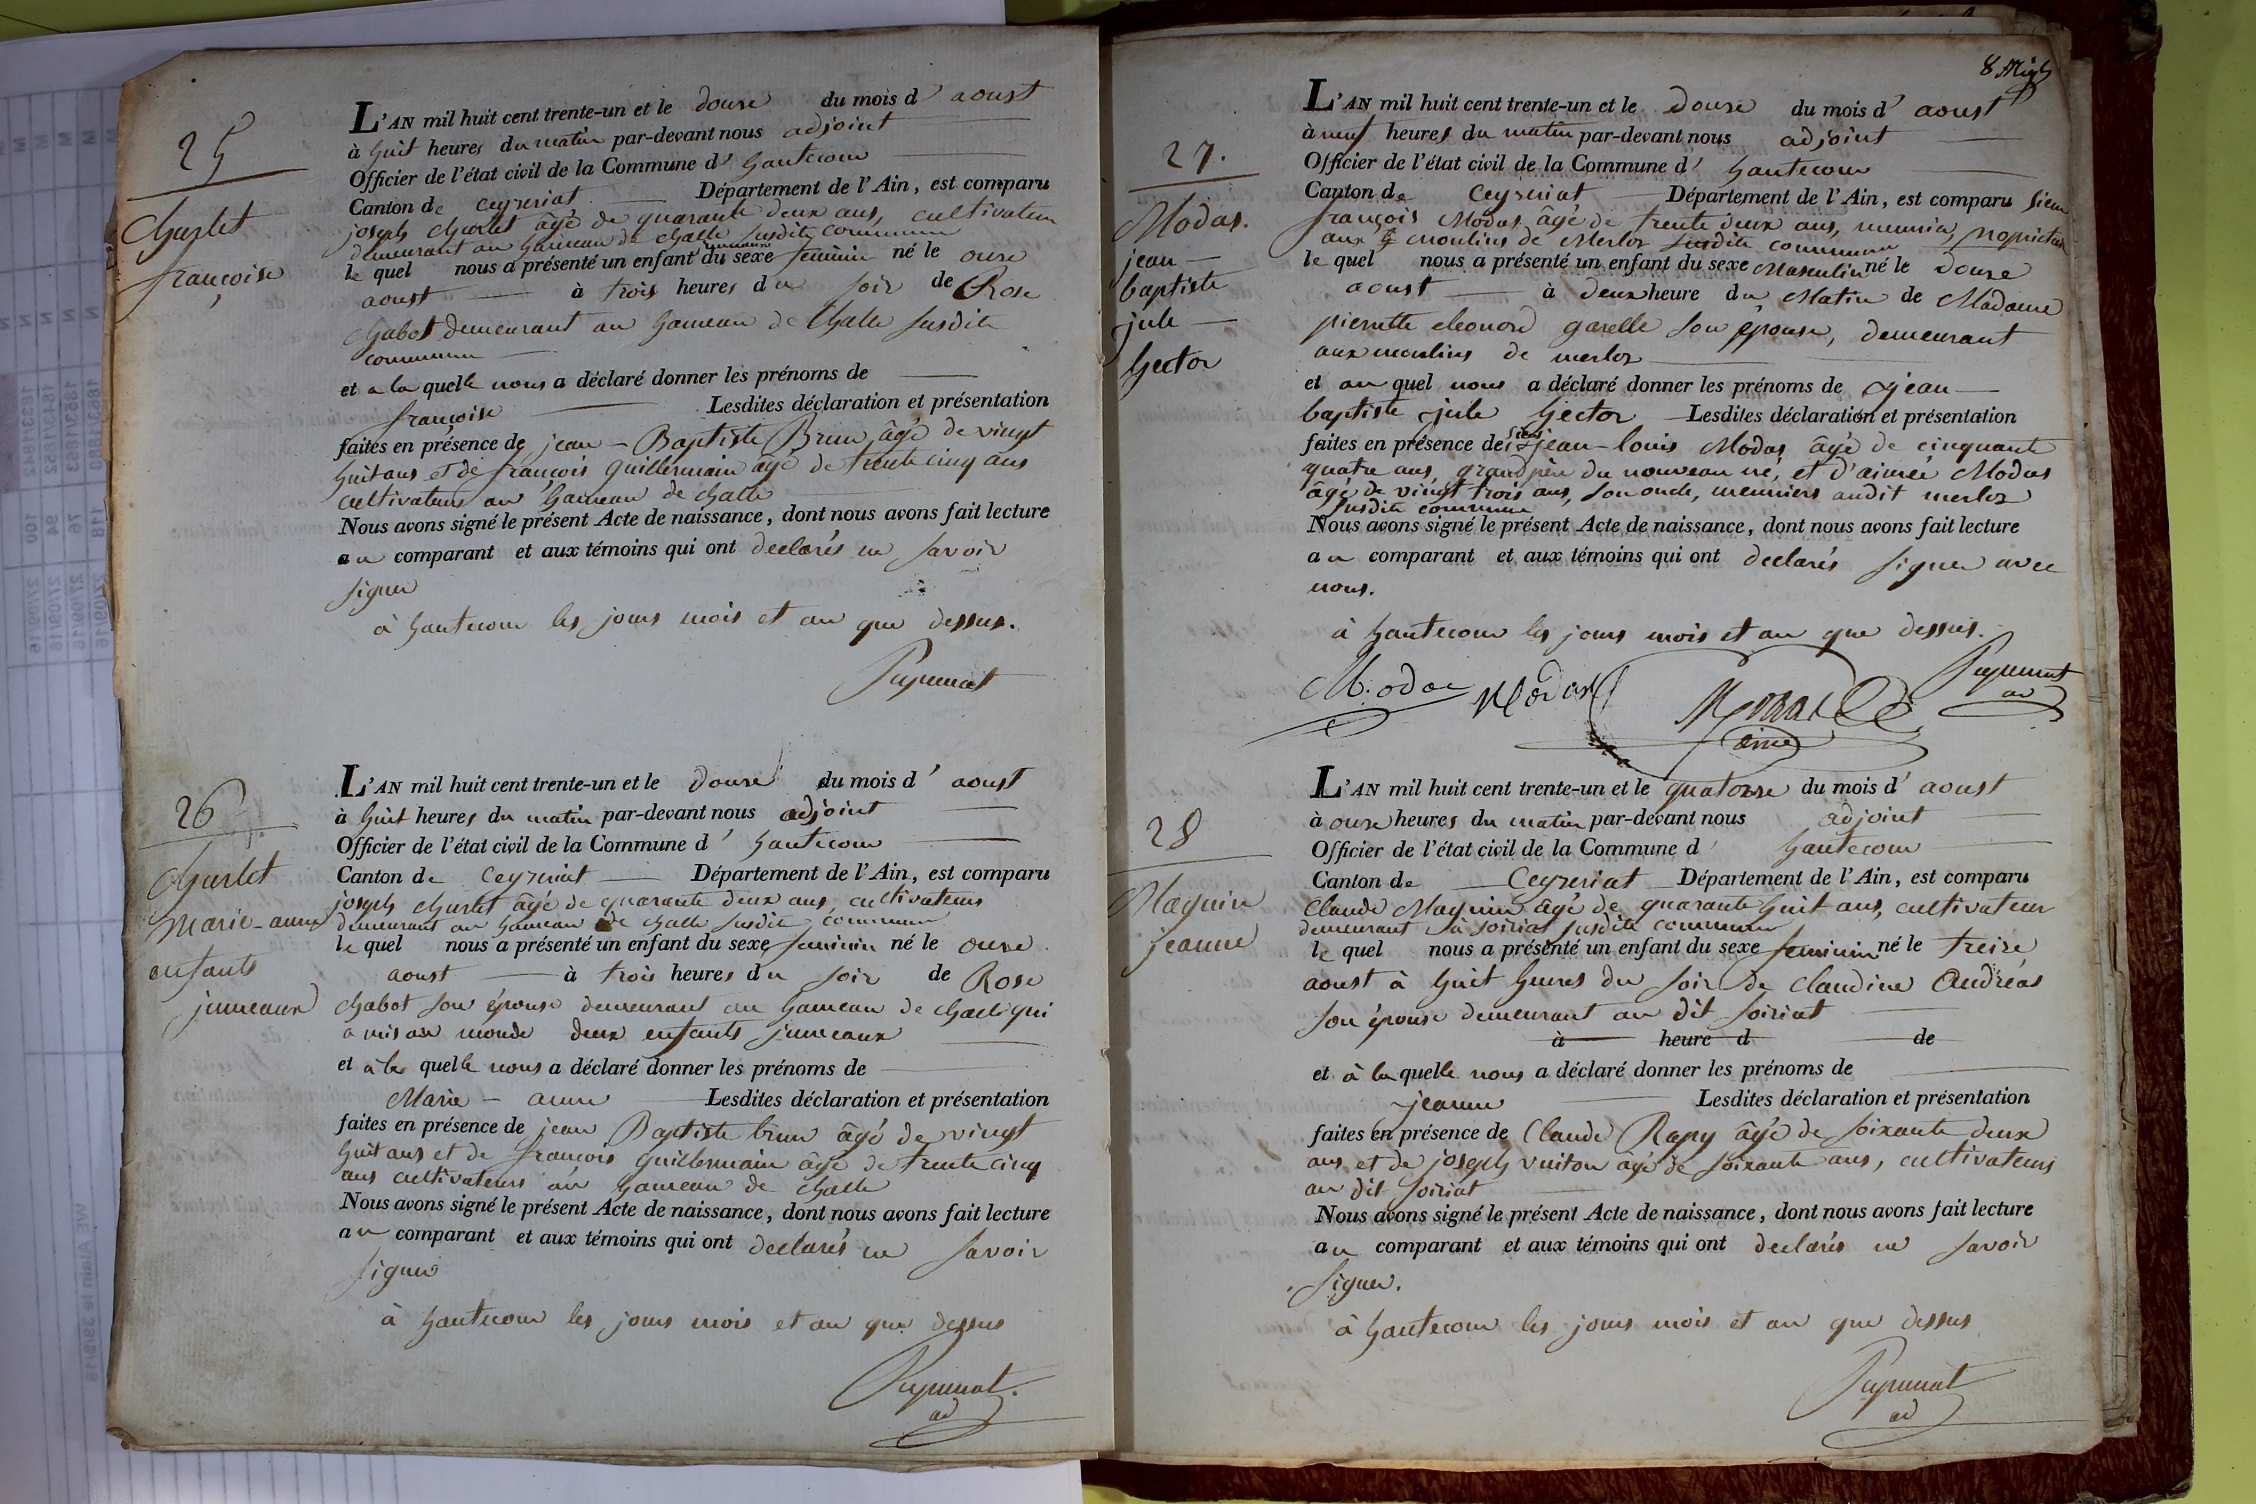 25
Charlet
françoise
L'AN mil huit cent trente-un et le douze du mois d' aoust
à huit heures du matin par-devant nous adjoint
Officier de l'état civil de la Commune d' hautecour
Canton de Ceyzeriat Département de l'Ain, est comparu
joseph Charlet âgé de quarante deux ans, cultivateur
demeurant au hameau de Challe susdite commune
le quel nous a présenté un enfant jumeaux du sexe feminin né le onze
aoust à trois heures du soir de Rose
Chabot demeurant au hameau de Challe susdite
commune
et a la quelle nous a déclaré donner les prénoms de
françoise Lesdites déclaration et présentation
faites en présence de jean-Baptiste Brun âgé de vingt
huit ans et de françois guillermain âgé de trente cinq ans
cultivateurs au hameau de Challe
Nous avons signé le présent Acte de naissance, dont nous avons fait lecture
au comparant et aux témoins qui ont declarés ne savoir
signer
à hautecour les jours mois et an que dessus.
26
Charlet
Marie-anne
enfants
jumeaux
L'AN mil huit cent trente-un et le douze du mois d' aoust
à huit heures du matin par-devant nous adjoint
Officier de l'état civil de la Commune d' hautecour
Canton de Ceyzeriat Département de l'Ain, est comparu
joseph Charlet âgé de quarante deux ans, cultivateurs
demeurant au hameau de Challe susdite commune
le quel nous a présenté un enfant du sexe feminin né le onze
aoust à trois heures du soir de Rose
Chabot son épouse demeurant au hameau de Challe qui
a mis au monde deux enfants jumeaux
et à la quelle nous a déclaré donner les prénoms de
Marie-anne Lesdites déclaration et présentation
faites en présence de jean Baptiste brun âgé de vingt
huit ans et de françois guillermain âgé de trente cinq
ans cultivateurs au hameau de Challe
Nous avons signé le présent Acte de naissance, dont nous avons fait lecture
au comparant et aux témoins qui ont declarés ne savoir
signer
à hautecour les jours mois et an que dessus
ad
27.
Modas.
jean
baptiste
jule
hector
L'AN mil huit cent trente-un et le douze du mois d' aoust
à neuf heures du matin par-devant nous adjoint
Officier de l'état civil de la Commune d' hautecour
Canton de Ceyzeriat Département de l'Ain, est comparu sieur
françois Modas âgé de trente deux ans, meunier, propriétaire
aux moulins de Merloz susdite commune
le quel nous a présenté un enfant du sexe Masculin né le douze
aoust à deux heure du Matin de Madame
pierrette eleonord garelle son épouse, demeurant
aux moulins de merloz
et au quel nous a déclaré donner les prénoms de jean
baptiste jule hector Lesdites déclaration et présentation
faites en présence de sieur jean-louis Modas âgé de cinquante
quatre ans, grand père du nouveau né, et d'aimée Modas
âgé de vingt trois ans, son oncle, meuniers audit merloz
susdite commune
Nous avons signé le présent Acte de naissance, dont nous avons fait lecture
au comparant et aux témoins qui ont declarés signer avec
nous.
à hautecour les jours mois et an que dessus.
Modas Modas
ad
28
Maquin
jeanne
L'AN mil huit cent trente-un et le quatorze du mois d' aoust
à onze heures du matin par-devant nous adjoint
Officier de l'état civil de la Commune d' hautecour
Canton de Ceyzeriat Département de l'Ain, est comparu
Claude Maquin âgé de quarante huit ans, cultivateur
demeurant à soiriat susdite commune
le quel nous a présenté un enfant du sexe feminin né le treize
aoust à huit heures du soir de Claudine Andréas
son épouse demeurant au dit soiriat
à heure d de
et à la quelle nous a déclaré donner les prénoms de
jeanne Lesdites déclaration et présentation
faites en présence de Claude Rapy âgé de soixante deux
ans et de joseph vuiton âgé de soixante ans, cultivateurs
au dit soiriat
Nous avons signé le présent Acte de naissance, dont nous avons fait lecture
au comparant et aux témoins qui ont declarés ne savoir
signer.
à hautecour les jours mois et an que dessus
ad